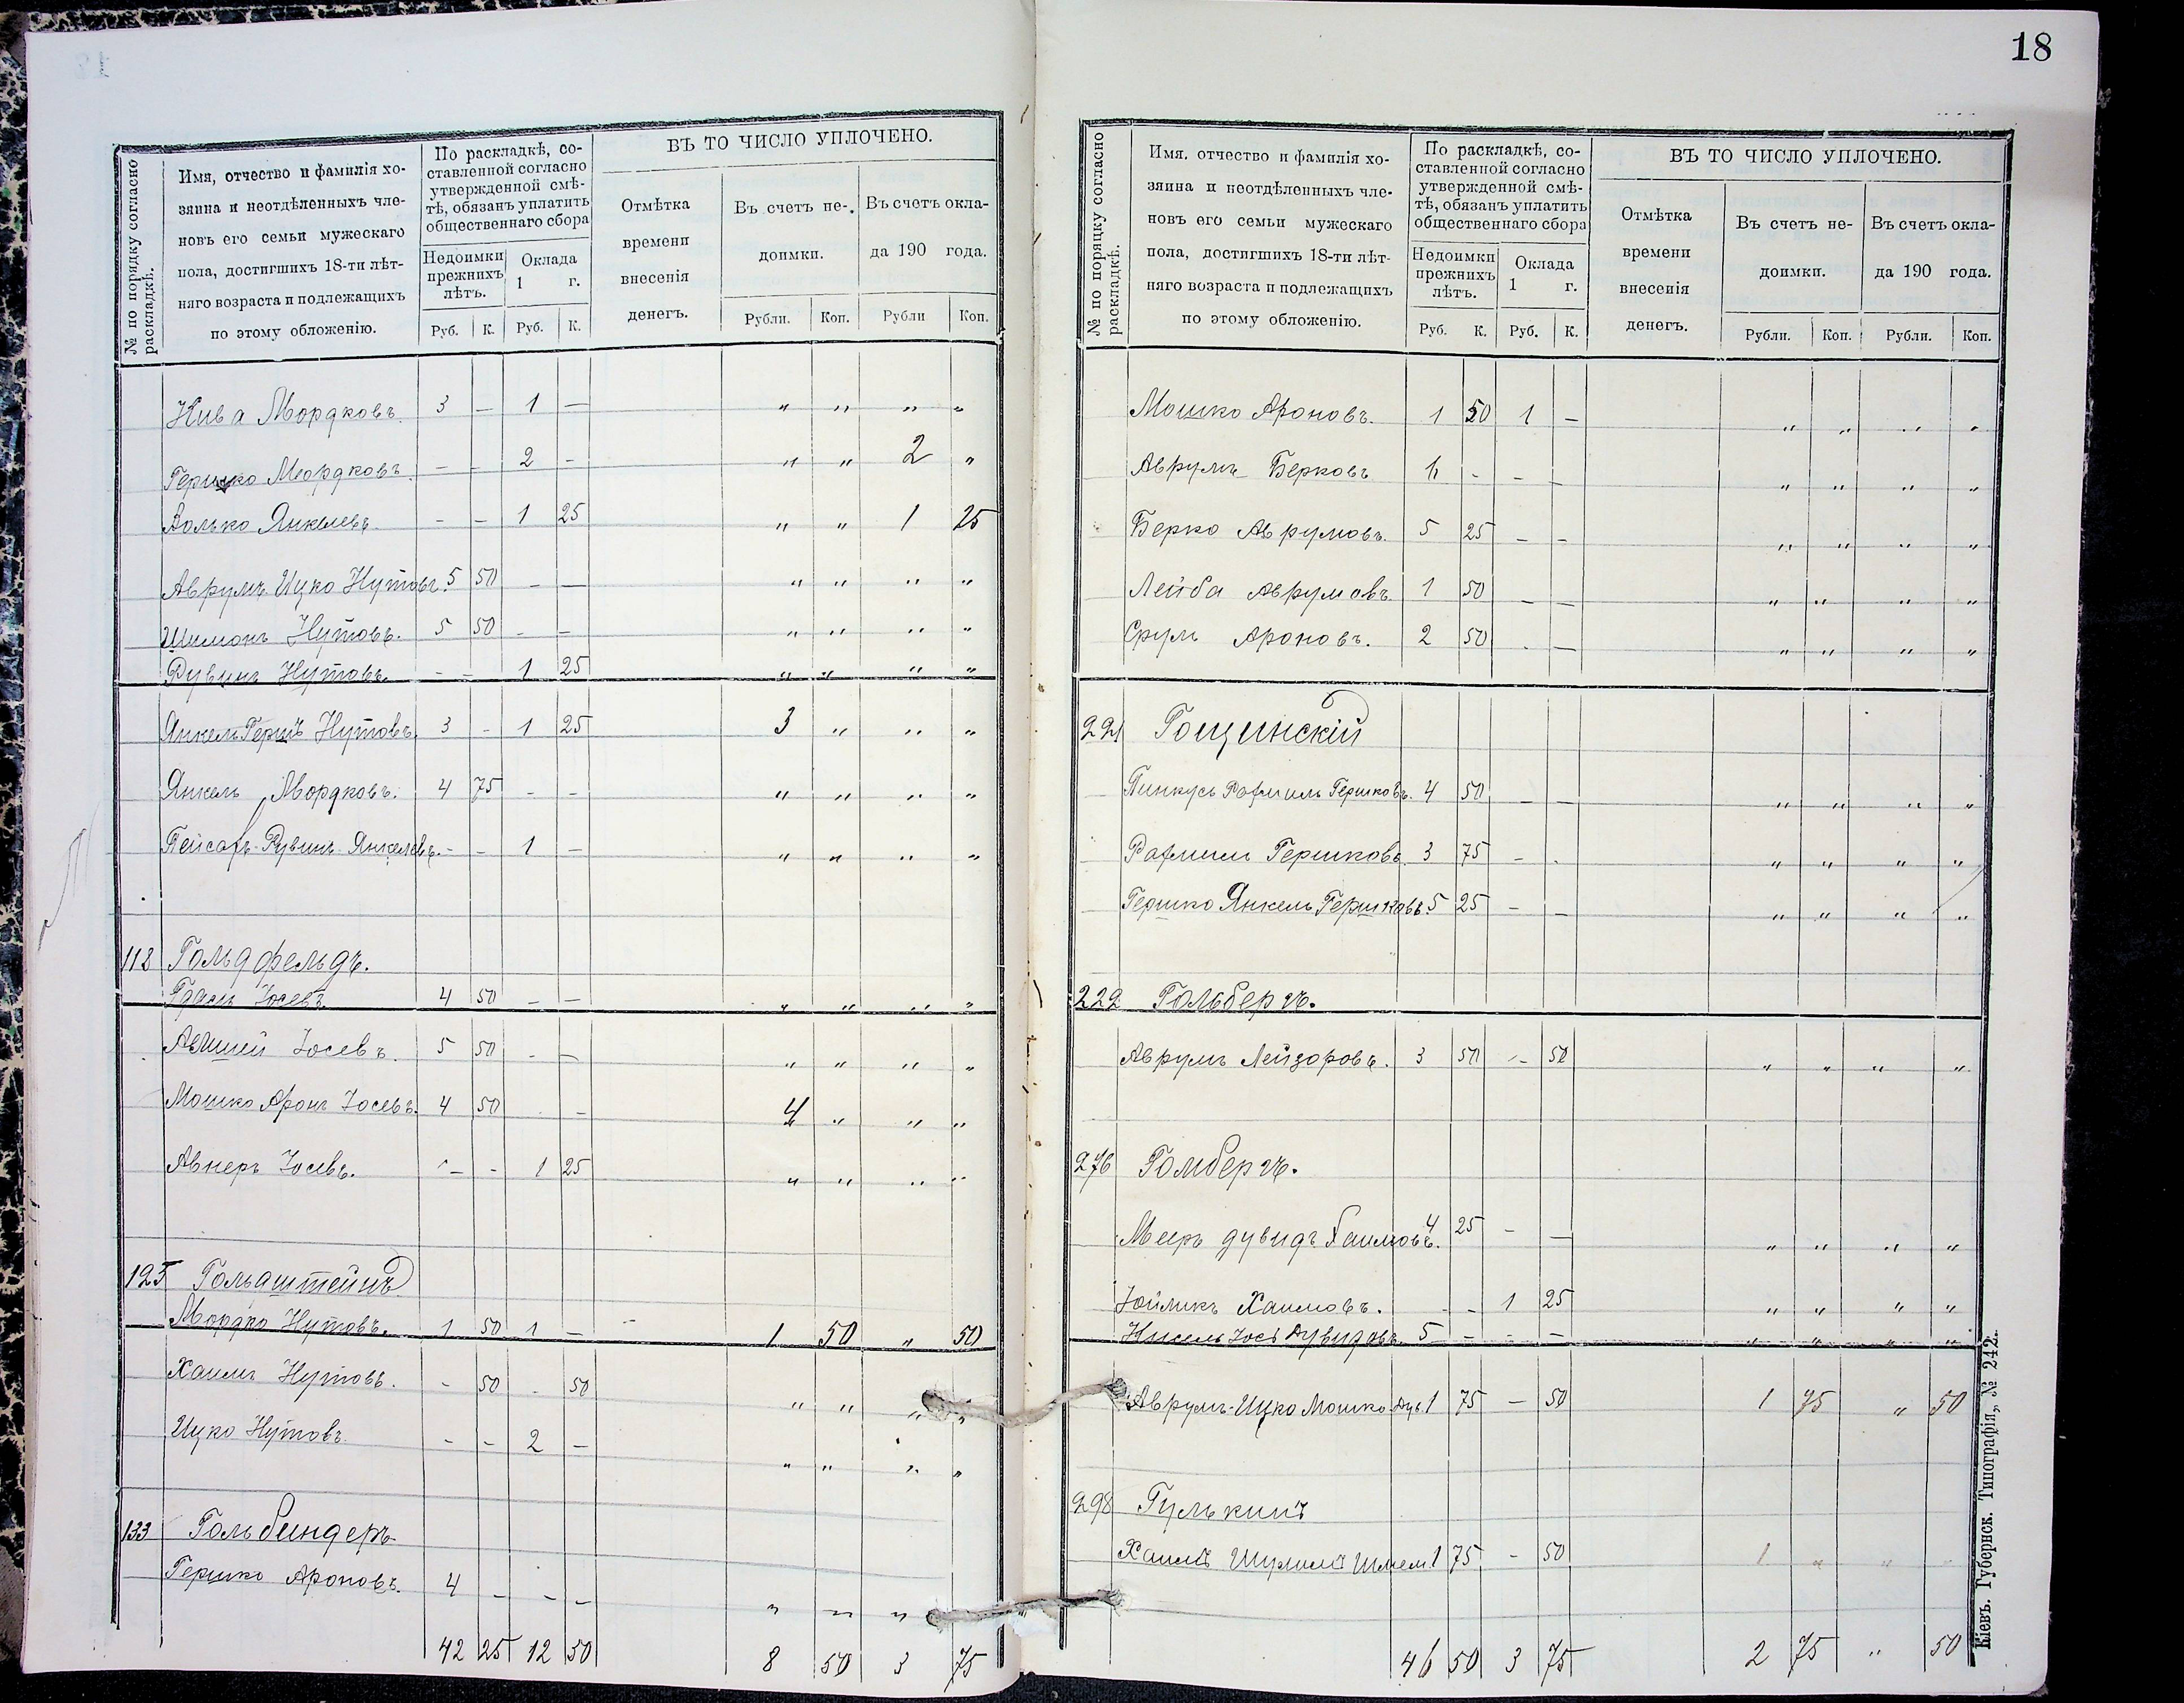 18
№ по порядку согласно раскладкѣ.
Имя, отчество и фамилія хо-
зяина и неотдѣленныхъ чле-
новъ его семьи мужескаго
пола, достигшихъ 18-ти лѣт-
няго возраста и подлежащихъ
по этому обложенію.
По раскладкѣ, со-
ставленной согласно
утвержденной смѣ-
тѣ, обязанъ уплатить
общественнаго сбора
Недоимки прежнихъ лѣтъ.
Оклада 1 г.
Руб. К. Руб. К.
ВЪ ТО ЧИСЛО УПЛОЧЕНО.
Отмѣтка
времени
внесенія
денегъ.
Въ счетъ не-
доимки.
Въ счетъ окла-
да 190 года.
Рубли. Коп. Рубли Коп.
Кива Мордковъ. 3 — 1 — " " " "
Гершко Мордковъ. — — 2 — " " 2 "
Волько Янкелевъ — — 1 25 " " 1 25
Аврумъ Ицко Нутовъ. 5 50 — — " " " "
Шимонъ Нутовъ. 5 50 — — " " " "
Рувинъ Нутовъ — — 1 25 " " " "
Янкель Гершъ Нутовъ 3 — 1 25 3 " " "
Янкель Мордковъ. 4 75 — — " " " "
Пейсахъ-Рувинъ Янкелевъ. — — 1 — " " " "
118 Гольдфельдъ.
Іосевъ 4 50 — — " " " "
Іосевъ. 5 50 — — " " " "
Мошко Аронъ Іосевъ. 4 50 — — 4 " " "
Авнеръ Іосевъ. — — 1 25 " " " "
125 Гольдштейнъ
Мордко Нутовъ. 1 50 1 — 1 50 " 50
Хаимъ Нутовъ. — 50 — 50 " " " "
Ицко Нутовъ. — — 2 — " " " "
133 Гольбиндеръ
Гершко Ароновъ. 4 — — — " " "
42 25 12 50 8 50 3 75
№ по порядку согласно раскладкѣ.
Имя, отчество и фамилія хо-
зяина и неотдѣленныхъ чле-
новъ его семьи мужескаго
пола, достигшихъ 18-ти лѣт-
няго возраста и подлежащихъ
по этому обложенію.
По раскладкѣ, со-
ставленной согласно
утвержденной смѣ-
тѣ, обязанъ уплатить
общественнаго сбора
Недоимки прежнихъ лѣтъ.
Оклада 1 г.
Руб. К. Руб. К.
ВЪ ТО ЧИСЛО УПЛОЧЕНО.
Отмѣтка
времени
внесенія
денегъ.
Въ счетъ не-
доимки.
Въ счетъ окла-
да 190 года.
Рубли. Коп. Рубли. Коп.
Мошко Ароновъ. 1 50 1 — " " " "
Аврумъ Берковъ — — — " " " "
Берко Аврумовъ. 5 25 — — " " " "
Лейба Аврумовъ 1 50 — — " " " "
Сруль Ароновъ. 2 50 — — " " " "
221 Гощинскій
Пинкусъ Рахмиль Гершковъ. 4 50 — — " " " "
Рахмиль Гершковъ. 3 75 — — " " " "
Гершко Янкель Гершковъ. 5 25 — — " " " "
222 Гольбергъ.
Аврумъ Лейзоровъ. 3 50 — 50 " " " "
276 Гомбергъ.
Мееръ Дувидъ Хаимовъ. 4 25 — — " " " "
Іойликъ Хаимовъ. — — 1 25 " " " "
Кисель Іосъ Дувидовъ. 5 — — — " " " "
Аврумъ-Ицко Мошко-Дув 1 75 — 50 1 75 " 50
298 Гулькинъ
Хаимъ Шулимъ Шмел 1 75 — 50 1 " " "
46 50 3 75 2 75 " 50
Кіевъ. Губернск. Типографія, № 242.